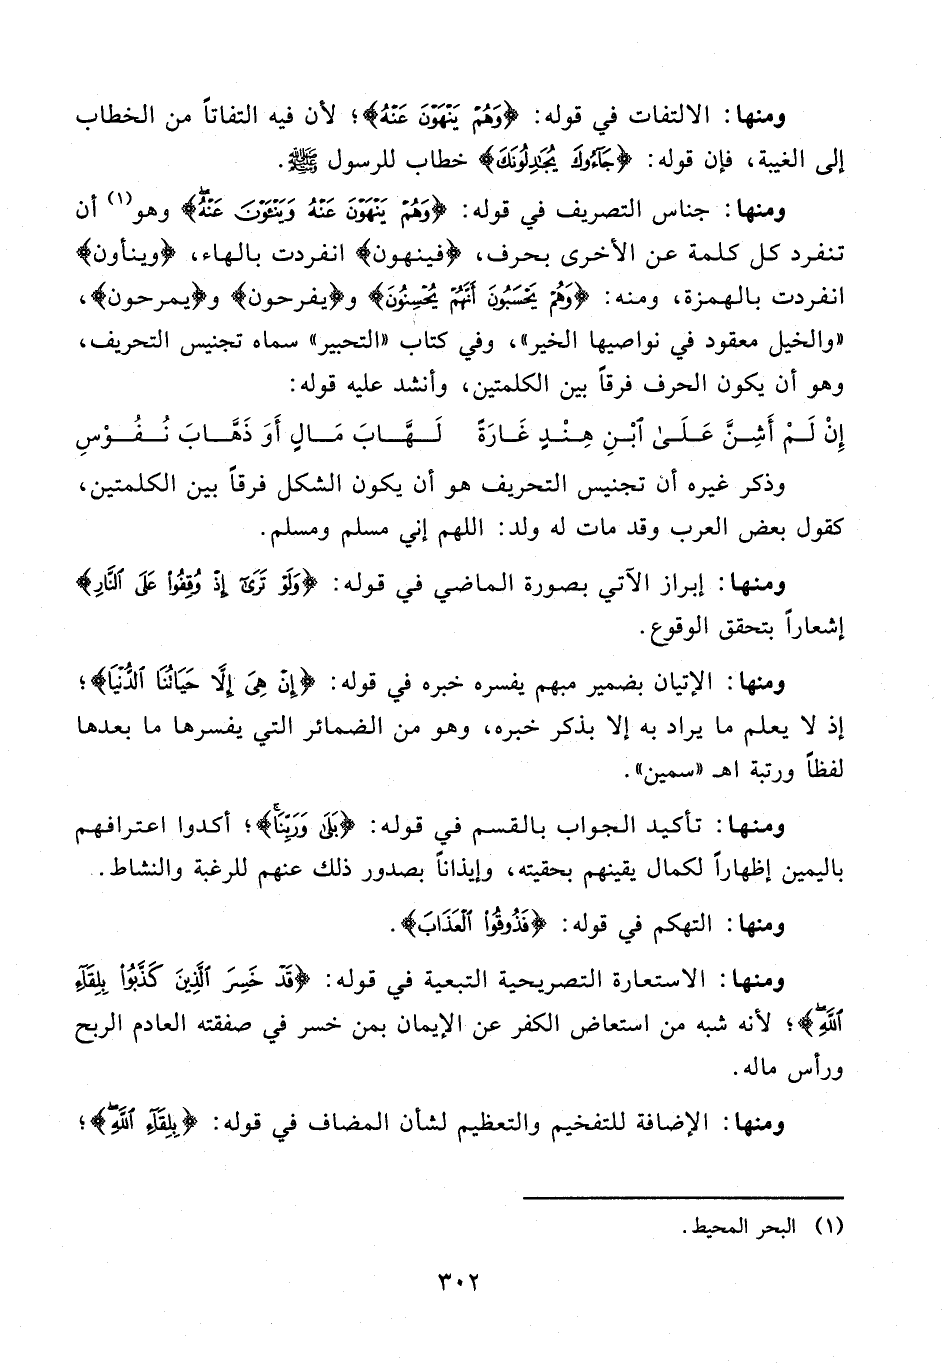 ومنها: الالتفات في قوله: ﴿وَهُمْ يَنْهَوْنَ عَنْهُ﴾؛ لأن فيه التفاتاً من الخطاب
إلى الغيبة، فإن قوله: ﴿جَآءُوكَ يُجَٰدِلُونَكَ﴾ خطاب للرسول ﷺ.
ومنها: جناس التصريف في قوله: ﴿وَهُمْ يَنْهَوْنَ عَنْهُ وَيَنْـَٔوْنَ عَنْهُۖ﴾ وهو(١) أن
تنفرد كل كلمة عن الأخرى بحرف، ﴿فينهون﴾ انفردت بالهاء، ﴿وينأون﴾
انفردت بالهمزة، ومنه: ﴿وَهُمْ يَحْسَبُونَ أَنَّهُمْ يُحْسِنُونَ﴾ و﴿يفرحون﴾ و﴿يمرحون﴾،
«والخيل معقود في نواصيها الخير»، وفي كتاب «التحبير» سماه تجنيس التحريف،
وهو أن يكون الحرف فرقاً بين الكلمتين، وأنشد عليه قوله:
إِنْ لَمْ أَشِنَّ عَلَىٰ ٱبْنِ هِنْدٍ غَارَةً لَهَّابَ مَالٍ أَوَ ذَهَّابَ نُفُوْسِ
وذكر غيره أن تجنيس التحريف هو أن يكون الشكل فرقاً بين الكلمتين،
كقول بعض العرب وقد مات له ولد: اللهم إني مسلم ومسلم.
ومنها: إبراز الآتي بصورة الماضي في قوله: ﴿وَلَوْ تَرَىٰٓ إِذْ وُقِفُوا۟ عَلَى ٱلنَّارِ﴾
إشعاراً بتحقق الوقوع.
ومنها: الإتيان بضمير مبهم يفسره خبره في قوله: ﴿إِنْ هِىَ إِلَّا حَيَاتُنَا ٱلدُّنْيَا﴾؛
إذ لا يعلم ما يراد به إلا بذكر خبره، وهو من الضمائر التي يفسرها ما بعدها
لفظاً ورتبة اهـ «سمين».
ومنها: تأكيد الجواب بالقسم في قوله: ﴿بَلَىٰ وَرَبِّنَاۚ﴾؛ أكدوا اعترافهم
باليمين إظهاراً لكمال يقينهم بحقيته، وإيذاناً بصدور ذلك عنهم للرغبة والنشاط.
ومنها: التهكم في قوله: ﴿فَذُوقُوا۟ ٱلْعَذَابَ﴾.
ومنها: الاستعارة التصريحية التبعية في قوله: ﴿قَدْ خَسِرَ ٱلَّذِينَ كَذَّبُوا۟ بِلِقَآءِ
ٱللَّهِۖ﴾؛ لأنه شبه من استعاض الكفر عن الإيمان بمن خسر في صفقته العادم الربح
ورأس ماله.
ومنها: الإضافة للتفخيم والتعظيم لشأن المضاف في قوله: ﴿بِلِقَآءِ ٱللَّهِۖ﴾؛
(١) البحر المحيط.
٣٠٢